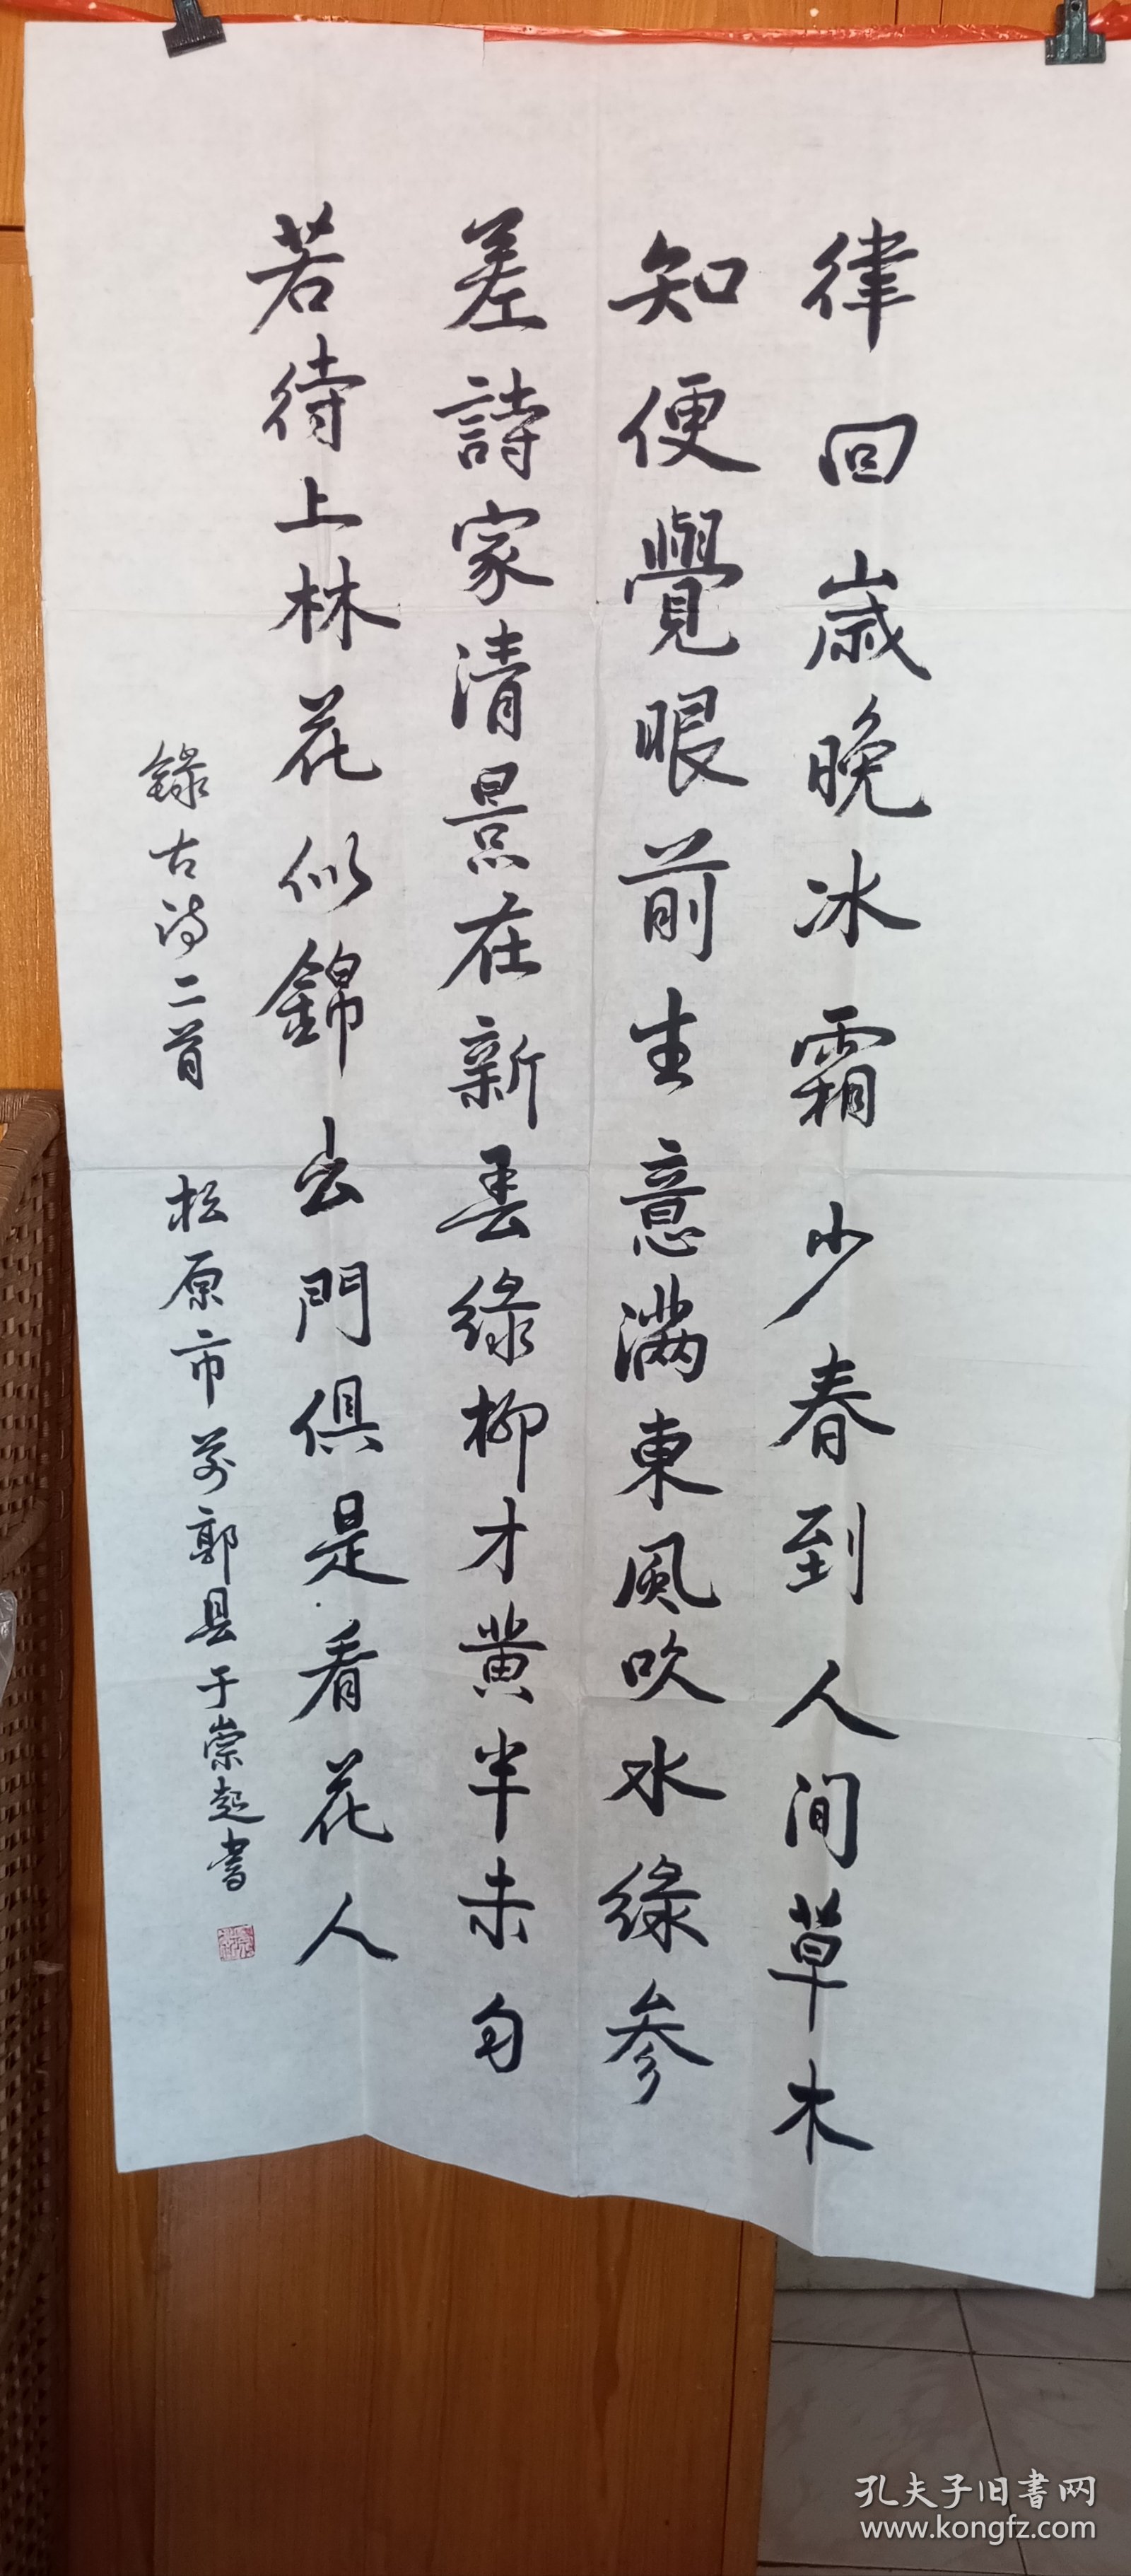 律回歲晚冰霜少春到人间草木
知便覺眼前生意滿東風吹水綠參
差詩家清景在新春綠柳才黄半未匀
若待上林花似錦出門俱是看花人
錄古诗二首 松原市前郭县于崇起書
孔夫子旧书网
www.kongfz.com